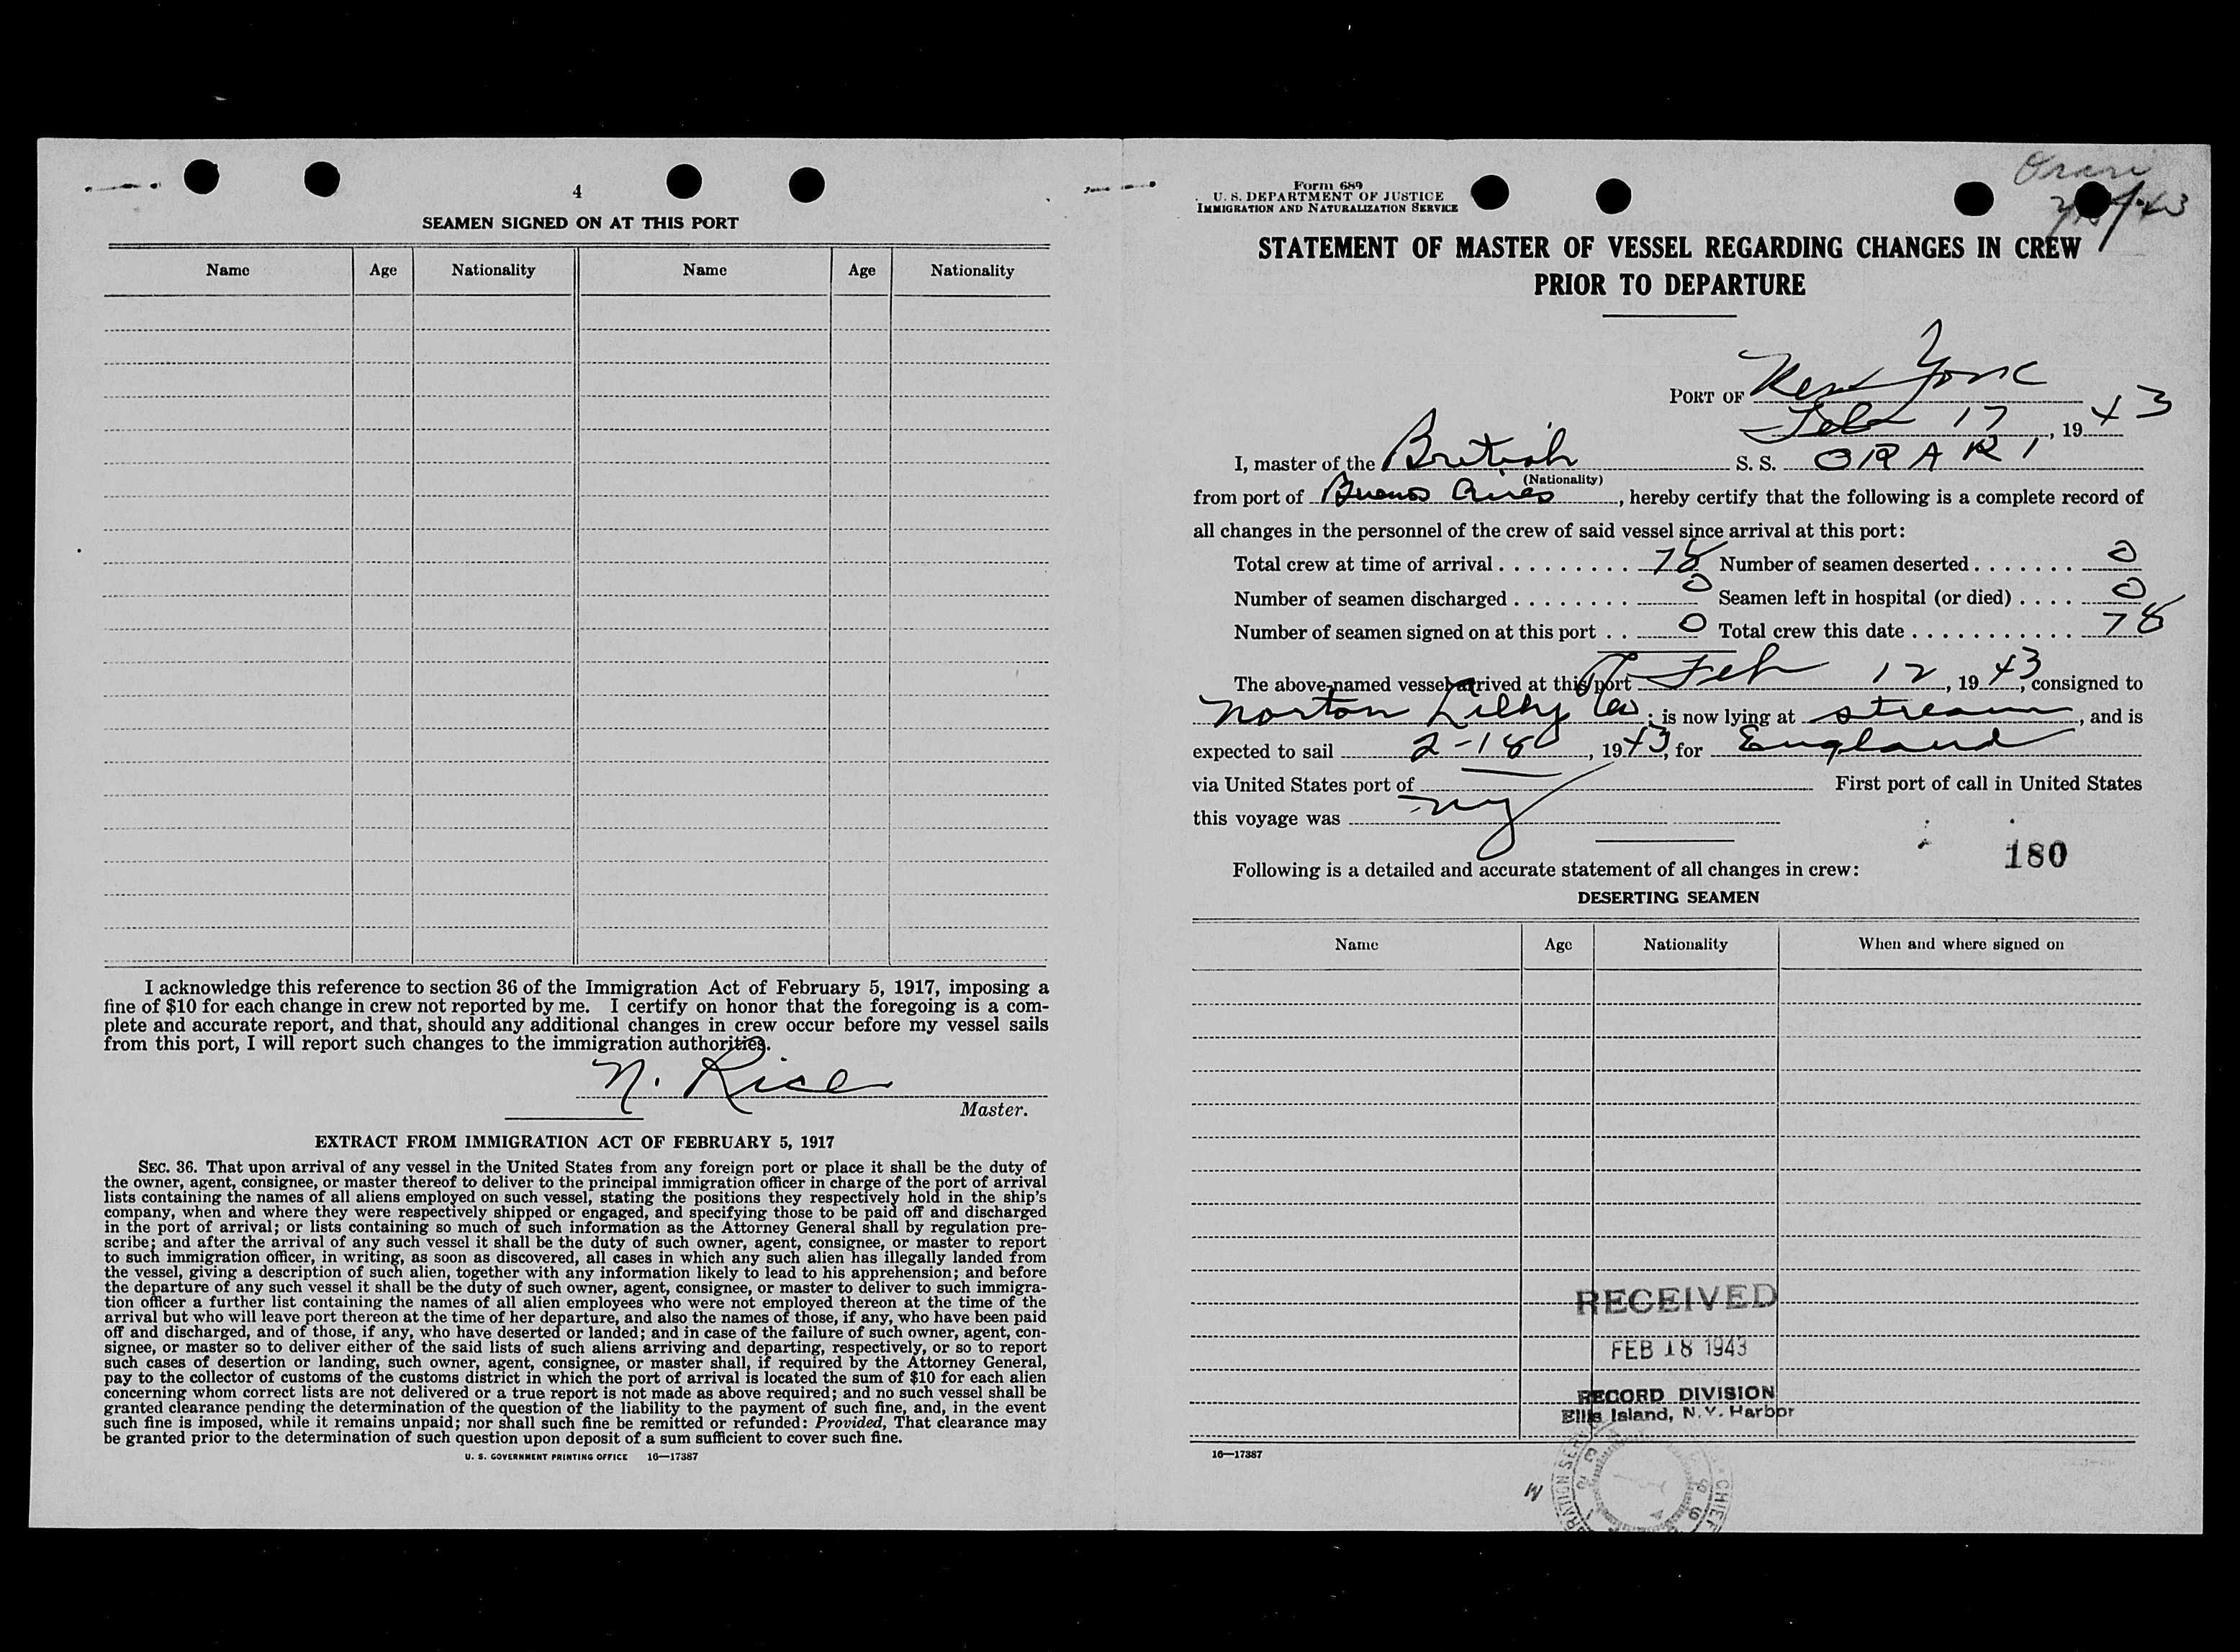 4
SEAMEN SIGNED ON AT THIS PORT
Name Age Nationality Name Age Nationality
I acknowledge this reference to section 36 of the Immigration Act of February 5, 1917, imposing a
fine of $10 for each change in crew not reported by me. I certify on honor that the foregoing is a com-
plete and accurate report, and that, should any additional changes in crew occur before my vessel sails
from this port, I will report such changes to the immigration authorities.
N. Rice
Master.
EXTRACT FROM IMMIGRATION ACT OF FEBRUARY 5, 1917
SEC. 36. That upon arrival of any vessel in the United States from any foreign port or place it shall be the duty of
the owner, agent, consignee, or master thereof to deliver to the principal immigration officer in charge of the port of arrival
lists containing the names of all aliens employed on such vessel, stating the positions they respectively hold in the ship's
company, when and where they were respectively shipped or engaged, and specifying those to be paid off and discharged
in the port of arrival; or lists containing so much of such information as the Attorney General shall by regulation pre-
scribe; and after the arrival of any such vessel it shall be the duty of such owner, agent, consignee, or master to report
to such immigration officer, in writing, as soon as discovered, all cases in which any such alien has illegally landed from
the vessel, giving a description of such alien, together with any information likely to lead to his apprehension; and before
the departure of any such vessel it shall be the duty of such owner, agent, consignee, or master to deliver to such immigra-
tion officer a further list containing the names of all alien employees who were not employed thereon at the time of the
arrival but who will leave port thereon at the time of her departure, and also the names of those, if any, who have been paid
off and discharged, and of those, if any, who have deserted or landed; and in case of the failure of such owner, agent, con-
signee, or master so to deliver either of the said lists of such aliens arriving and departing, respectively, or so to report
such cases of desertion or landing, such owner, agent, consignee, or master shall, if required by the Attorney General,
pay to the collector of customs of the customs district in which the port of arrival is located the sum of $10 for each alien
concerning whom correct lists are not delivered or a true report is not made as above required; and no such vessel shall be
granted clearance pending the determination of the question of the liability to the payment of such fine, and, in the event
such fine is imposed, while it remains unpaid; nor shall such fine be remitted or refunded: Provided, That clearance may
be granted prior to the determination of such question upon deposit of a sum sufficient to cover such fine.
U. S. GOVERNMENT PRINTING OFFICE 16—17387
Orari
Form 689
U. S. DEPARTMENT OF JUSTICE
IMMIGRATION AND NATURALIZATION SERVICE
STATEMENT OF MASTER OF VESSEL REGARDING CHANGES IN CREW
PRIOR TO DEPARTURE
PORT OF New York
Feb 17, 1943
I, master of the British S. S. ORARI
(Nationality)
from port of Buenos Aires, hereby certify that the following is a complete record of
all changes in the personnel of the crew of said vessel since arrival at this port:
Total crew at time of arrival . . . . . . . . . . 78 Number of seamen deserted . . . . . . . 0
Number of seamen discharged . . . . . . . . 0 Seamen left in hospital (or died) . . . . 0
Number of seamen signed on at this port . . 0 Total crew this date . . . . . . . . . . . . 78
The above-named vessel arrived at this port Feb 12, 1943, consigned to
Norton Lilly Co; is now lying at stream, and is
expected to sail 2-18, 1943, for England
via United States port of First port of call in United States
this voyage was ny
180
Following is a detailed and accurate statement of all changes in crew:
DESERTING SEAMEN
Name Age Nationality When and where signed on
RECEIVED
FEB 18 1943
RECORD DIVISION
Ellis Island, N.Y. Harbor
16—17387
M
CHIEF